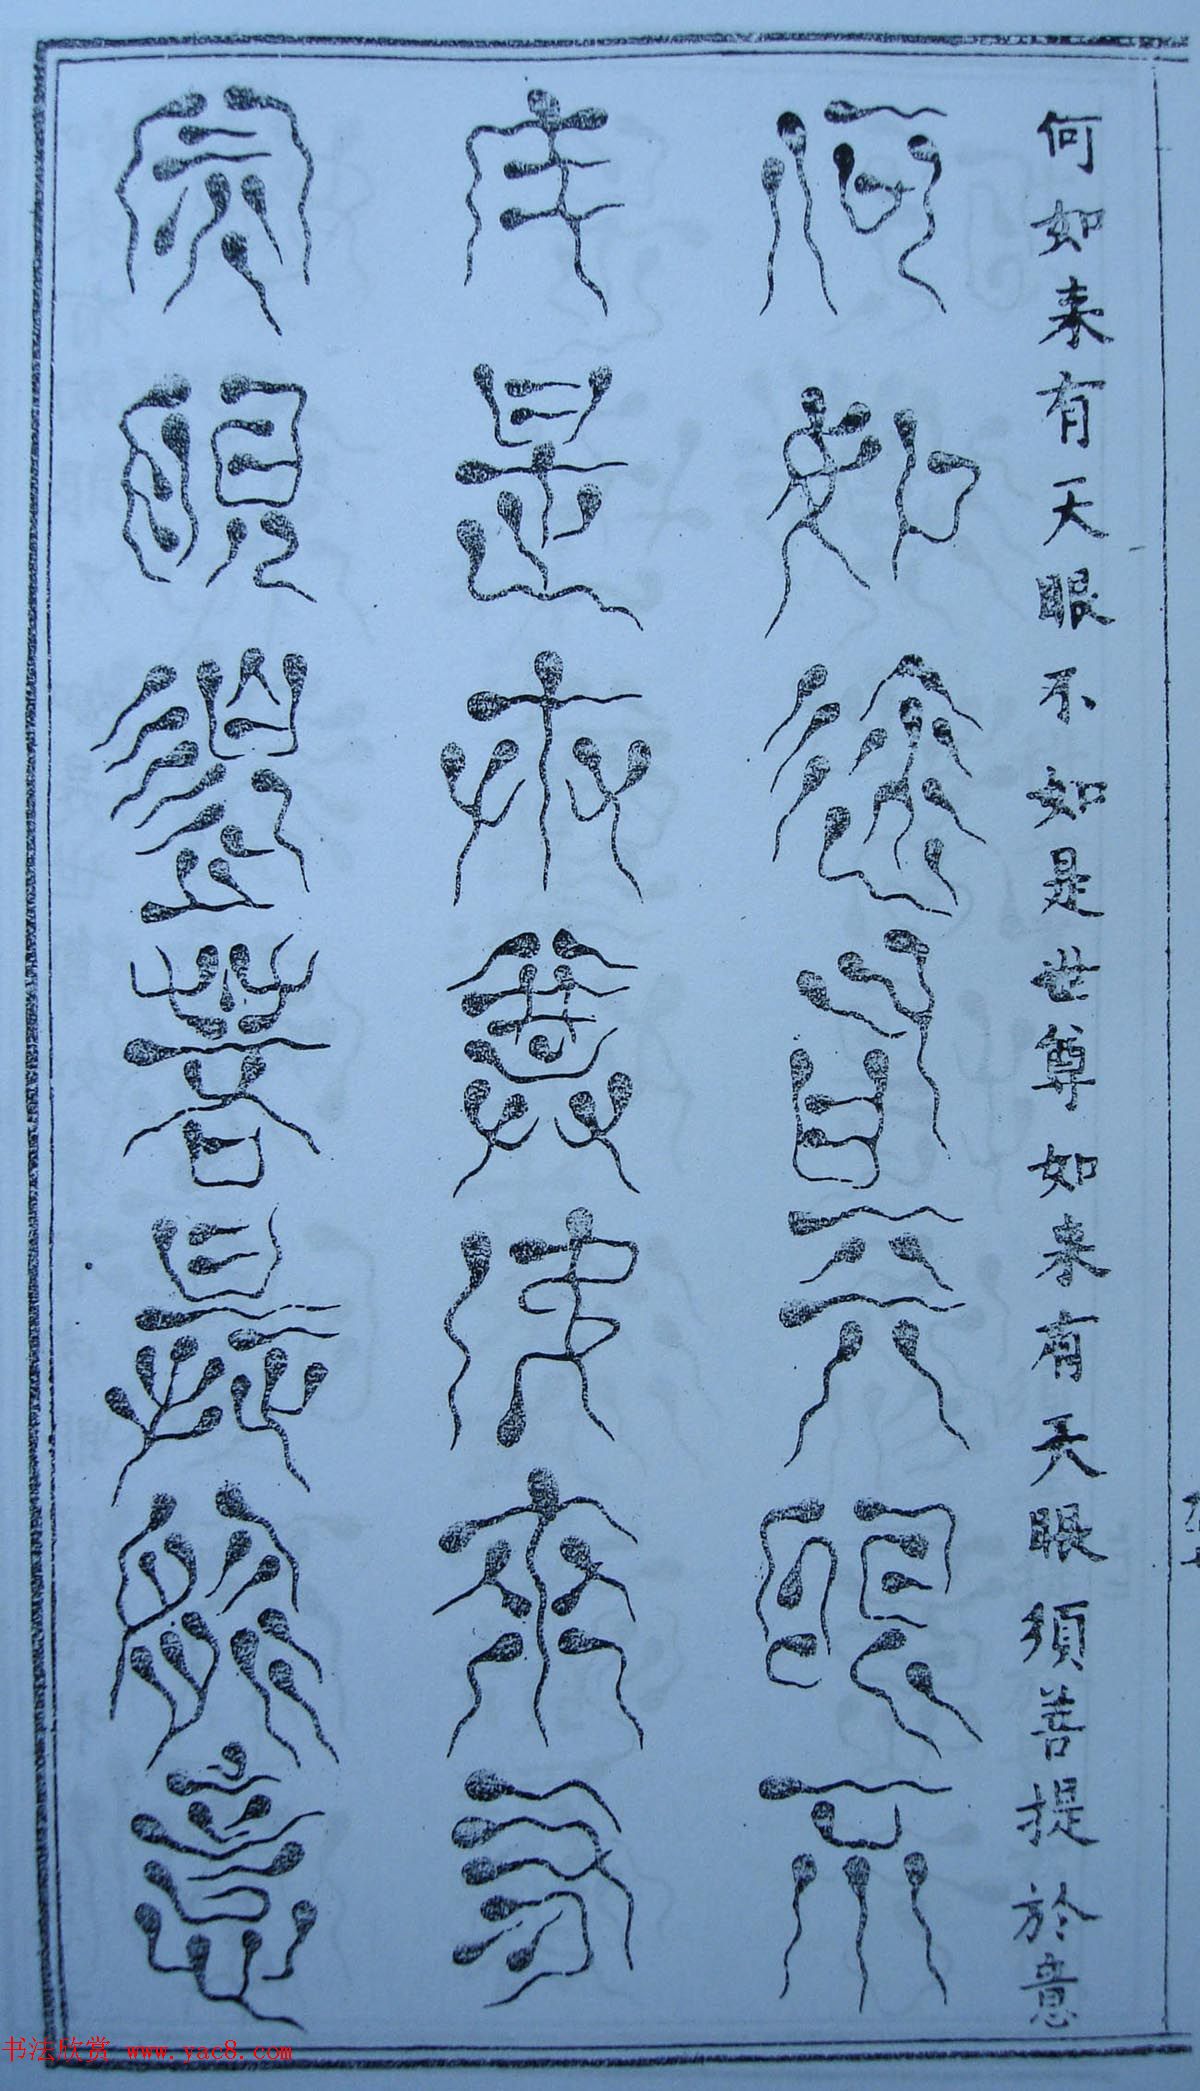 何如来有天眼不如是世尊如来有天眼須善提於意
何如來有天眼不
如是世尊如來有
天眼須菩提於意
书法欣赏 www.yac8.com